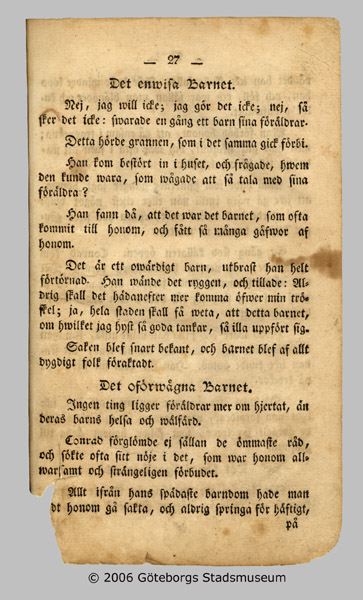 — 27 —
Det enwisa Barnet.
Nej, jag will icke; jag gör det icke; nej, så
sker det icke: swarade en gång ett barn sina föräldrar.
Detta hörde grannen, som i det samma gick förbi.
Han kom bestört in i huset, och frågade, hwem
den kunde wara, som wågade att så tala med sina
föräldra?
Han fann då, att det war det barnet, som ofta
kommit till honom, och fått så många gåfwor af
honom.
Det är ett owärdigt barn, utbrast han helt
förtörnad. Han wände det ryggen, och tillade: Al-
drig skall det hädanefter mer komma öfwer min trö-
skel; ja, hela staden skall så weta, att detta barnet,
om hwilket jag hyst så goda tankar, så illa uppfört sig.
Saken blef snart bekant, och barnet blef af allt
dygdigt folk föraktadt.
Det oförwägna Barnet.
Ingen ting ligger föräldrar mer om hjertat, än
deras barns helsa och wälfärd.
Conrad förglömde ej sällan de ömmaste råd,
och sökte ofta sitt nöje i det, som war honom all-
warsamt och strängeligen förbudet.
Allt ifrån hans spädaste barndom hade man
dt honom gå sakta, och aldrig springa för häftigt,
på
© 2006 Göteborgs Stadsmuseum